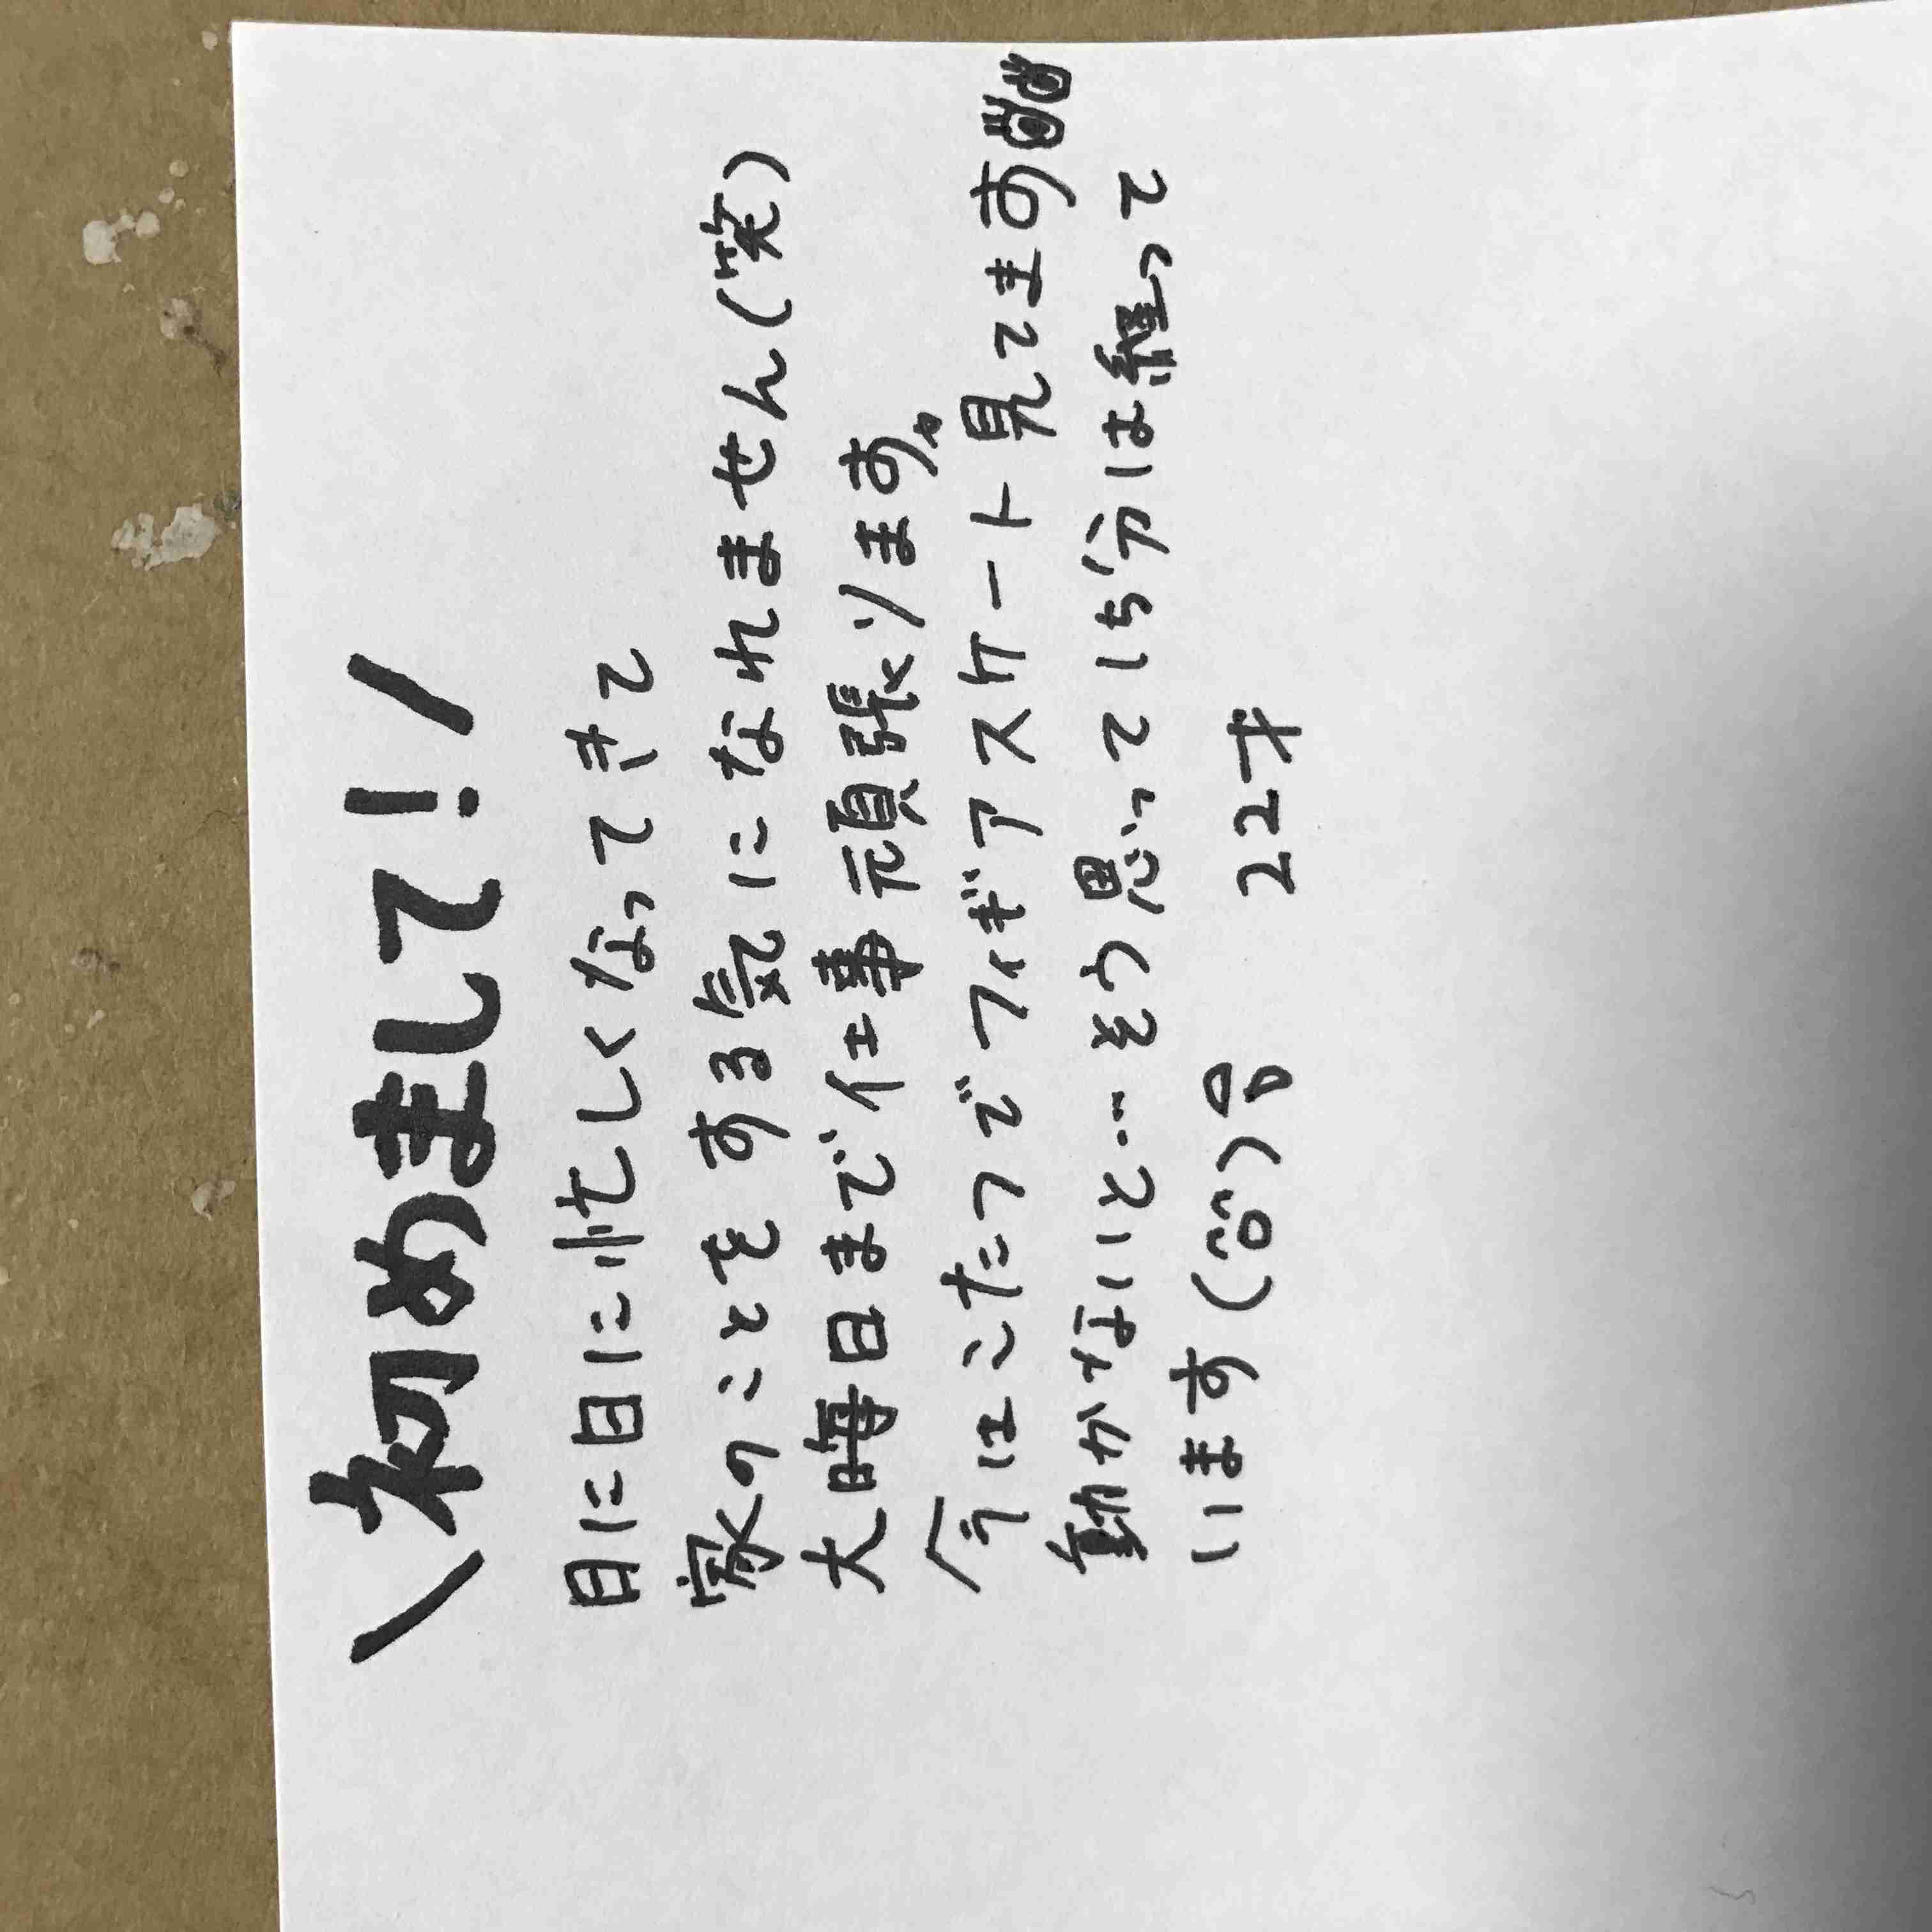 \初めまして!/
日に日に忙しくなってきて
家のことをする気になれません(笑)
大晦日まで仕事頑張ります。
今はこたつでフィギアスケート見てます👀
動かないと…そう思って15分は経って
います(笑)
22才